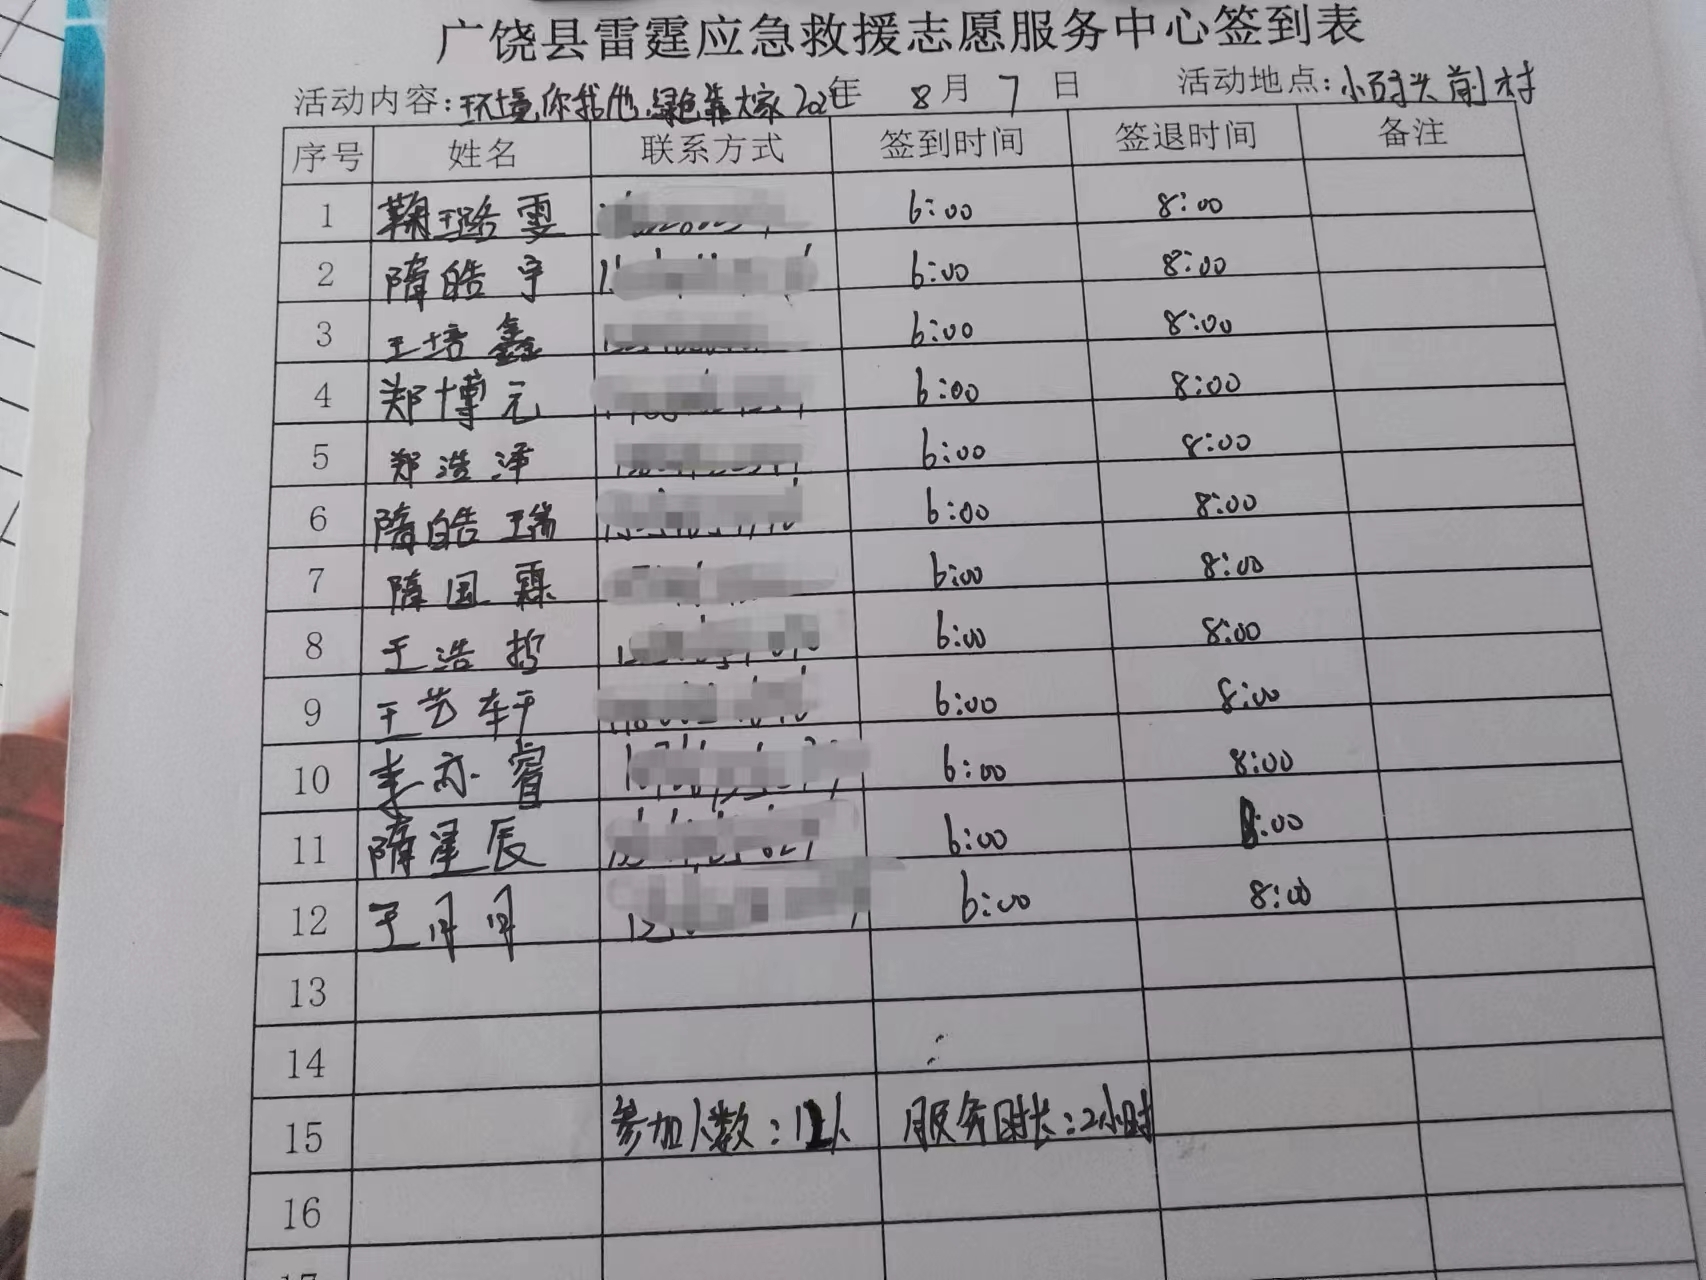 广饶县雷霆应急救援志愿服务中心签到表
活动内容:环境你我他,绿色靠大家 202 年 8月 7 日 活动地点:小码头前村
序号 姓名 联系方式 签到时间 签退时间 备注
1 鞠璐雯 6:00 8:00
2 隋皓宇 6:00 8:00
3 王培鑫 6:00 8:00
4 郑博元 6:00 8:00
5 郑浩泽 6:00 8:00
6 隋皓瑞 6:00 8:00
7 隋国霖 6:00 8:00
8 王浩哲 6:00 8:00
9 王艺轩 6:00 8:00
10 李亦睿 6:00 8:00
11 隋星辰 6:00 8:00
12 王月月 6:00 8:00
13
14
15 参加人数:12人 服务时长:2小时
16